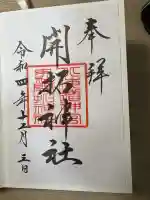 奉拝
開拓神社
令和四年十二月三日